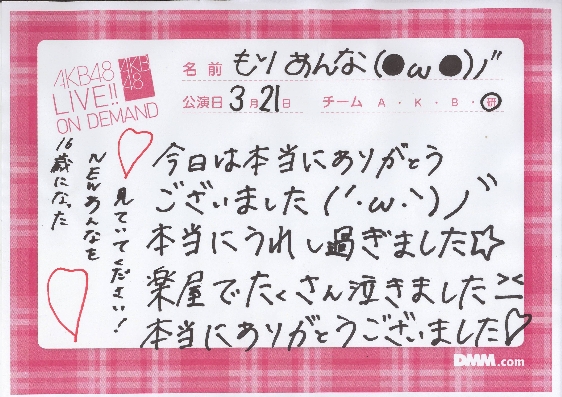 AKB48
LIVE!!
ON DEMAND
AKB
48
名前 もりあんな(●ω●)ノ"
公演日 3月21日 チーム A・K・B・研
今日は本当にありがとう
ございました(´・ω・`)ノ"
本当にうれし過ぎました☆
楽屋でたくさん泣きました><
本当にありがとうございました♡
16歳になった
NEWあんなを
見ていてください!
DMM.com